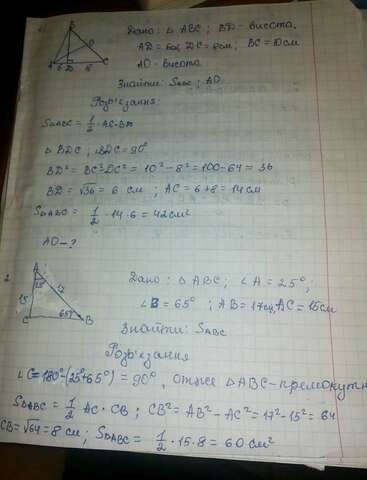 1.
B
O
A 6 D 8 C
Дано: △ ABC; BD - висота,
AD = 6см, DC = 8см; BC = 10см
AO - висота
Знайти: S△ABC; AO
Розв'язання:
S△ABC = 1/2 · AC · BD
△ BDC; ∠BDC = 90°
BD² = BC² - DC² = 10² - 8² = 100 - 64 = 36
BD = √36 = 6 см; AC = 6+8 = 14 см
S△ABC = 1/2 · 14 · 6 = 42 см²
AO - ?
2.
A
25°
15 17
65°
C B
Дано: △ ABC; ∠A = 25°;
∠B = 65°; AB = 17см, AC = 15см
Знайти: SABC
Розв'язання
∠C = 180° - (25° + 65°) = 90°, отже △ABC - прямокутн
S△ABC = 1/2 AC · CB; CB² = AB² - AC² = 17² - 15² = 64
CB = √64 = 8 см; S△ABC = 1/2 · 15 · 8 = 60 см²